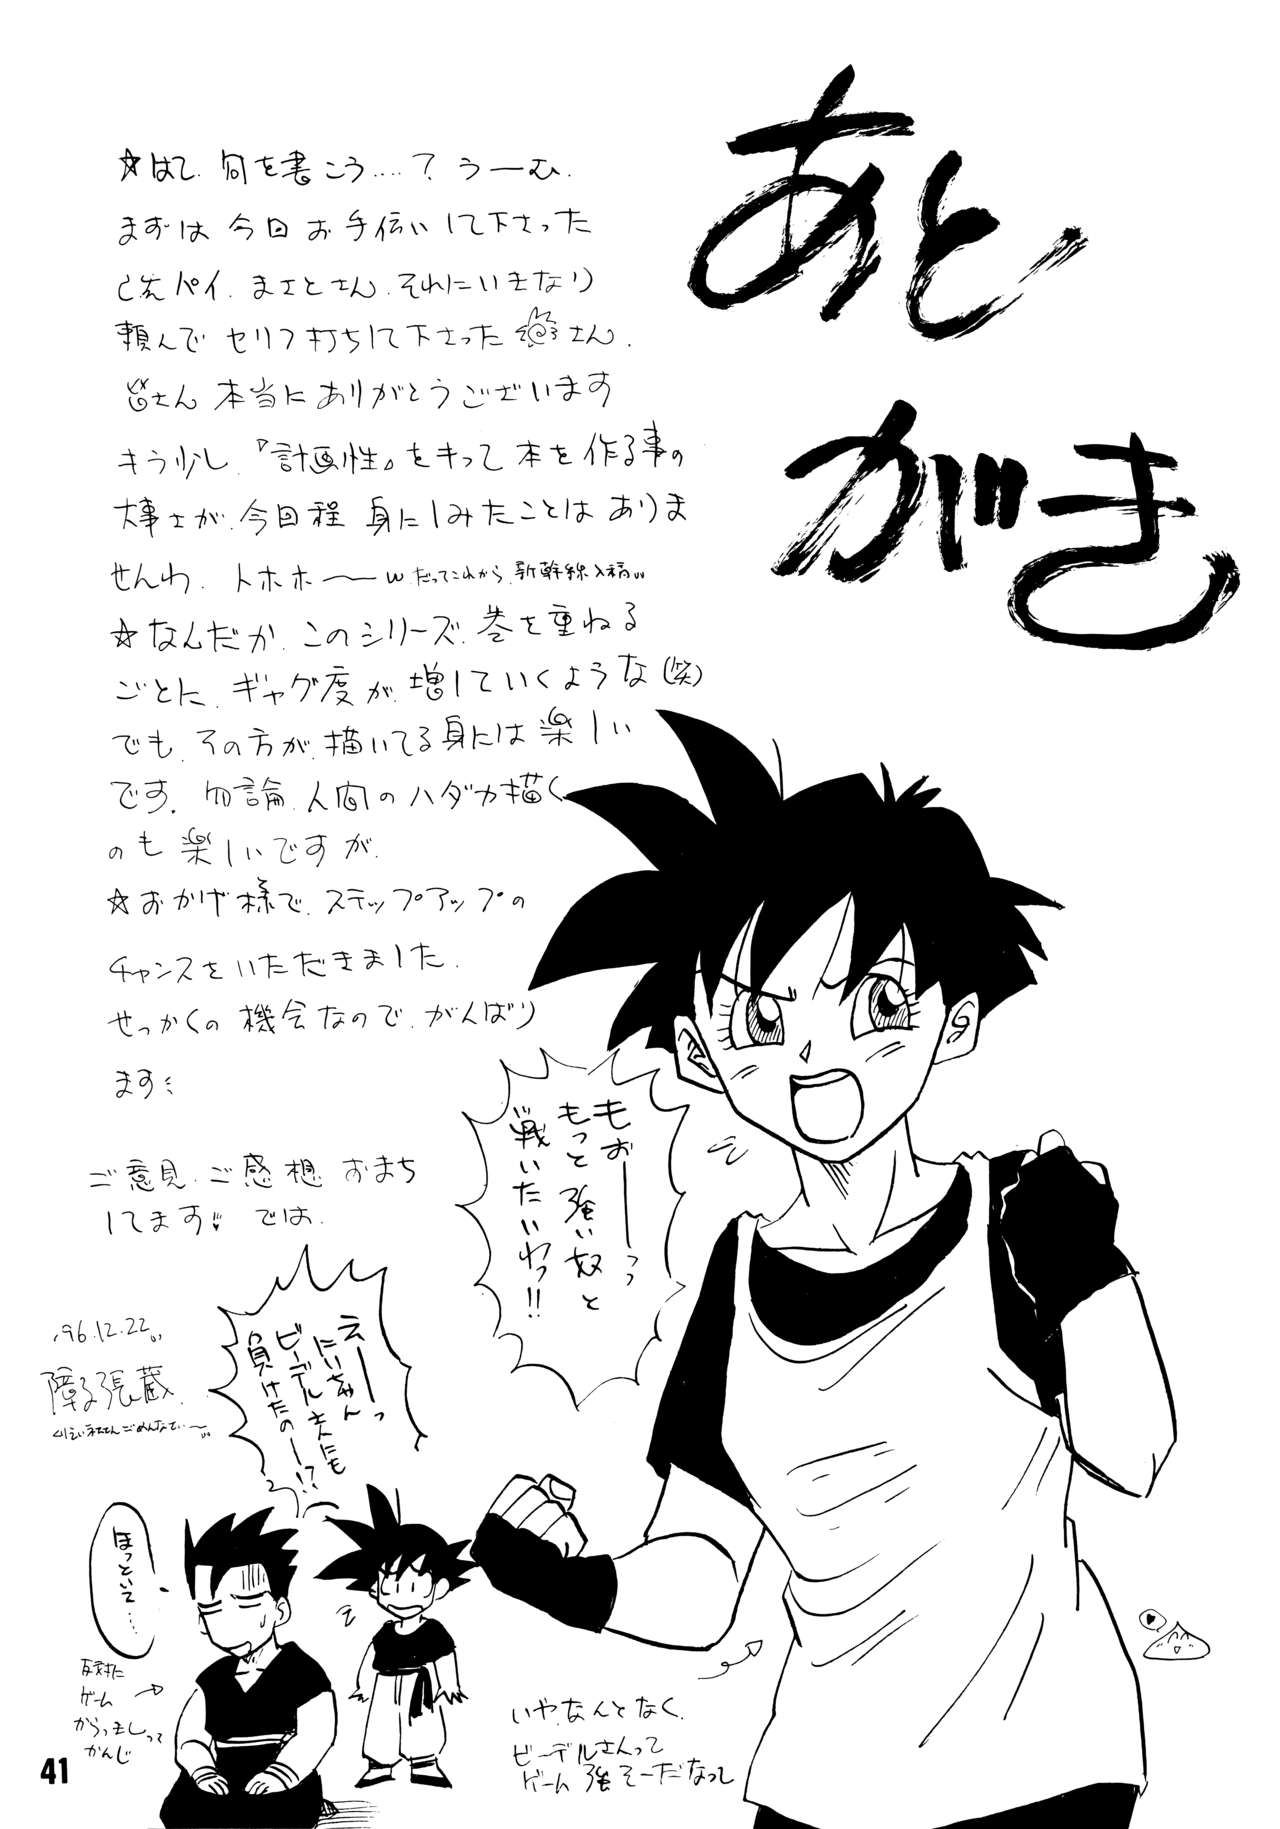 あと
がき
☆はて、何を書こう….？うーむ、
まずは今回お手伝いして下さった
先パイ、まさとさん、それにいきなり
頼んでセリフ打ちして下さった さん、
皆さん本当にありがとうございます
もう少し、『計画性』をもって本を作る事の
大事さが、今回程身にしみたことはありま
せんわ、トホホ〜〜w だってこれから、新幹線入稿
☆なんだか、このシリーズ、巻を重ねる
ごとに、ギャグ度が、増していくような（笑）
でも、その方が、描いてる身には楽しい
です。勿論、人間のハダカ描く
のも楽しいですが、
☆おかげ様で、ステップアップの
チャンスをいただきました、
せっかくの機会なので、がんばり
ます
ご意見、ご感想おまち
してます♥では、
'96.12.22
障子張蔵
ごめんなさい〜
もぉーーっっ
もっと強い奴と
戦いたいわっ!!
えーーっ
にいちゃん
ビーデルさんにも
負けたのー!?
ほっといて……
反対に
ゲーム
からっきしって
かんじ
いや、なんとなく、
ビーデルさんって
ゲーム強そーだなって
41